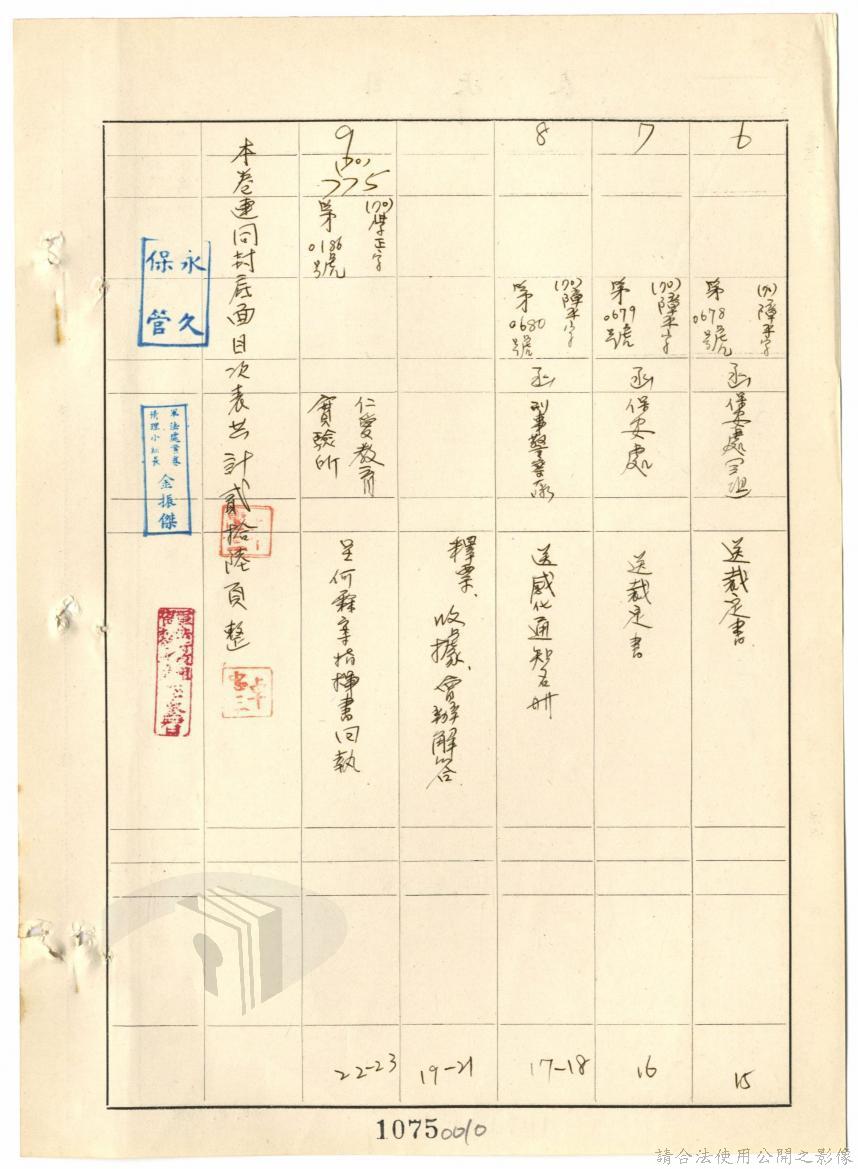 6
(70)障平字
第0678號
函
保安處
送裁定書
15
7
(70)障平字
第0679號
函
保安處
送裁定書
16
8
(70)障平字
第0680號
函
刑事警察
送感化通知名冊
17-18
釋票、收據、會辦解答
19-21
9
70
775
(70)學正字
第0186號
仁愛教育
實驗所
呈何霖案指揮書回執
22-23
本卷連同封底面目次表共計貳拾陸頁整
永久
保管
軍法處案卷
清理小組長
金振傑
10750010
請合法使用公開之影像